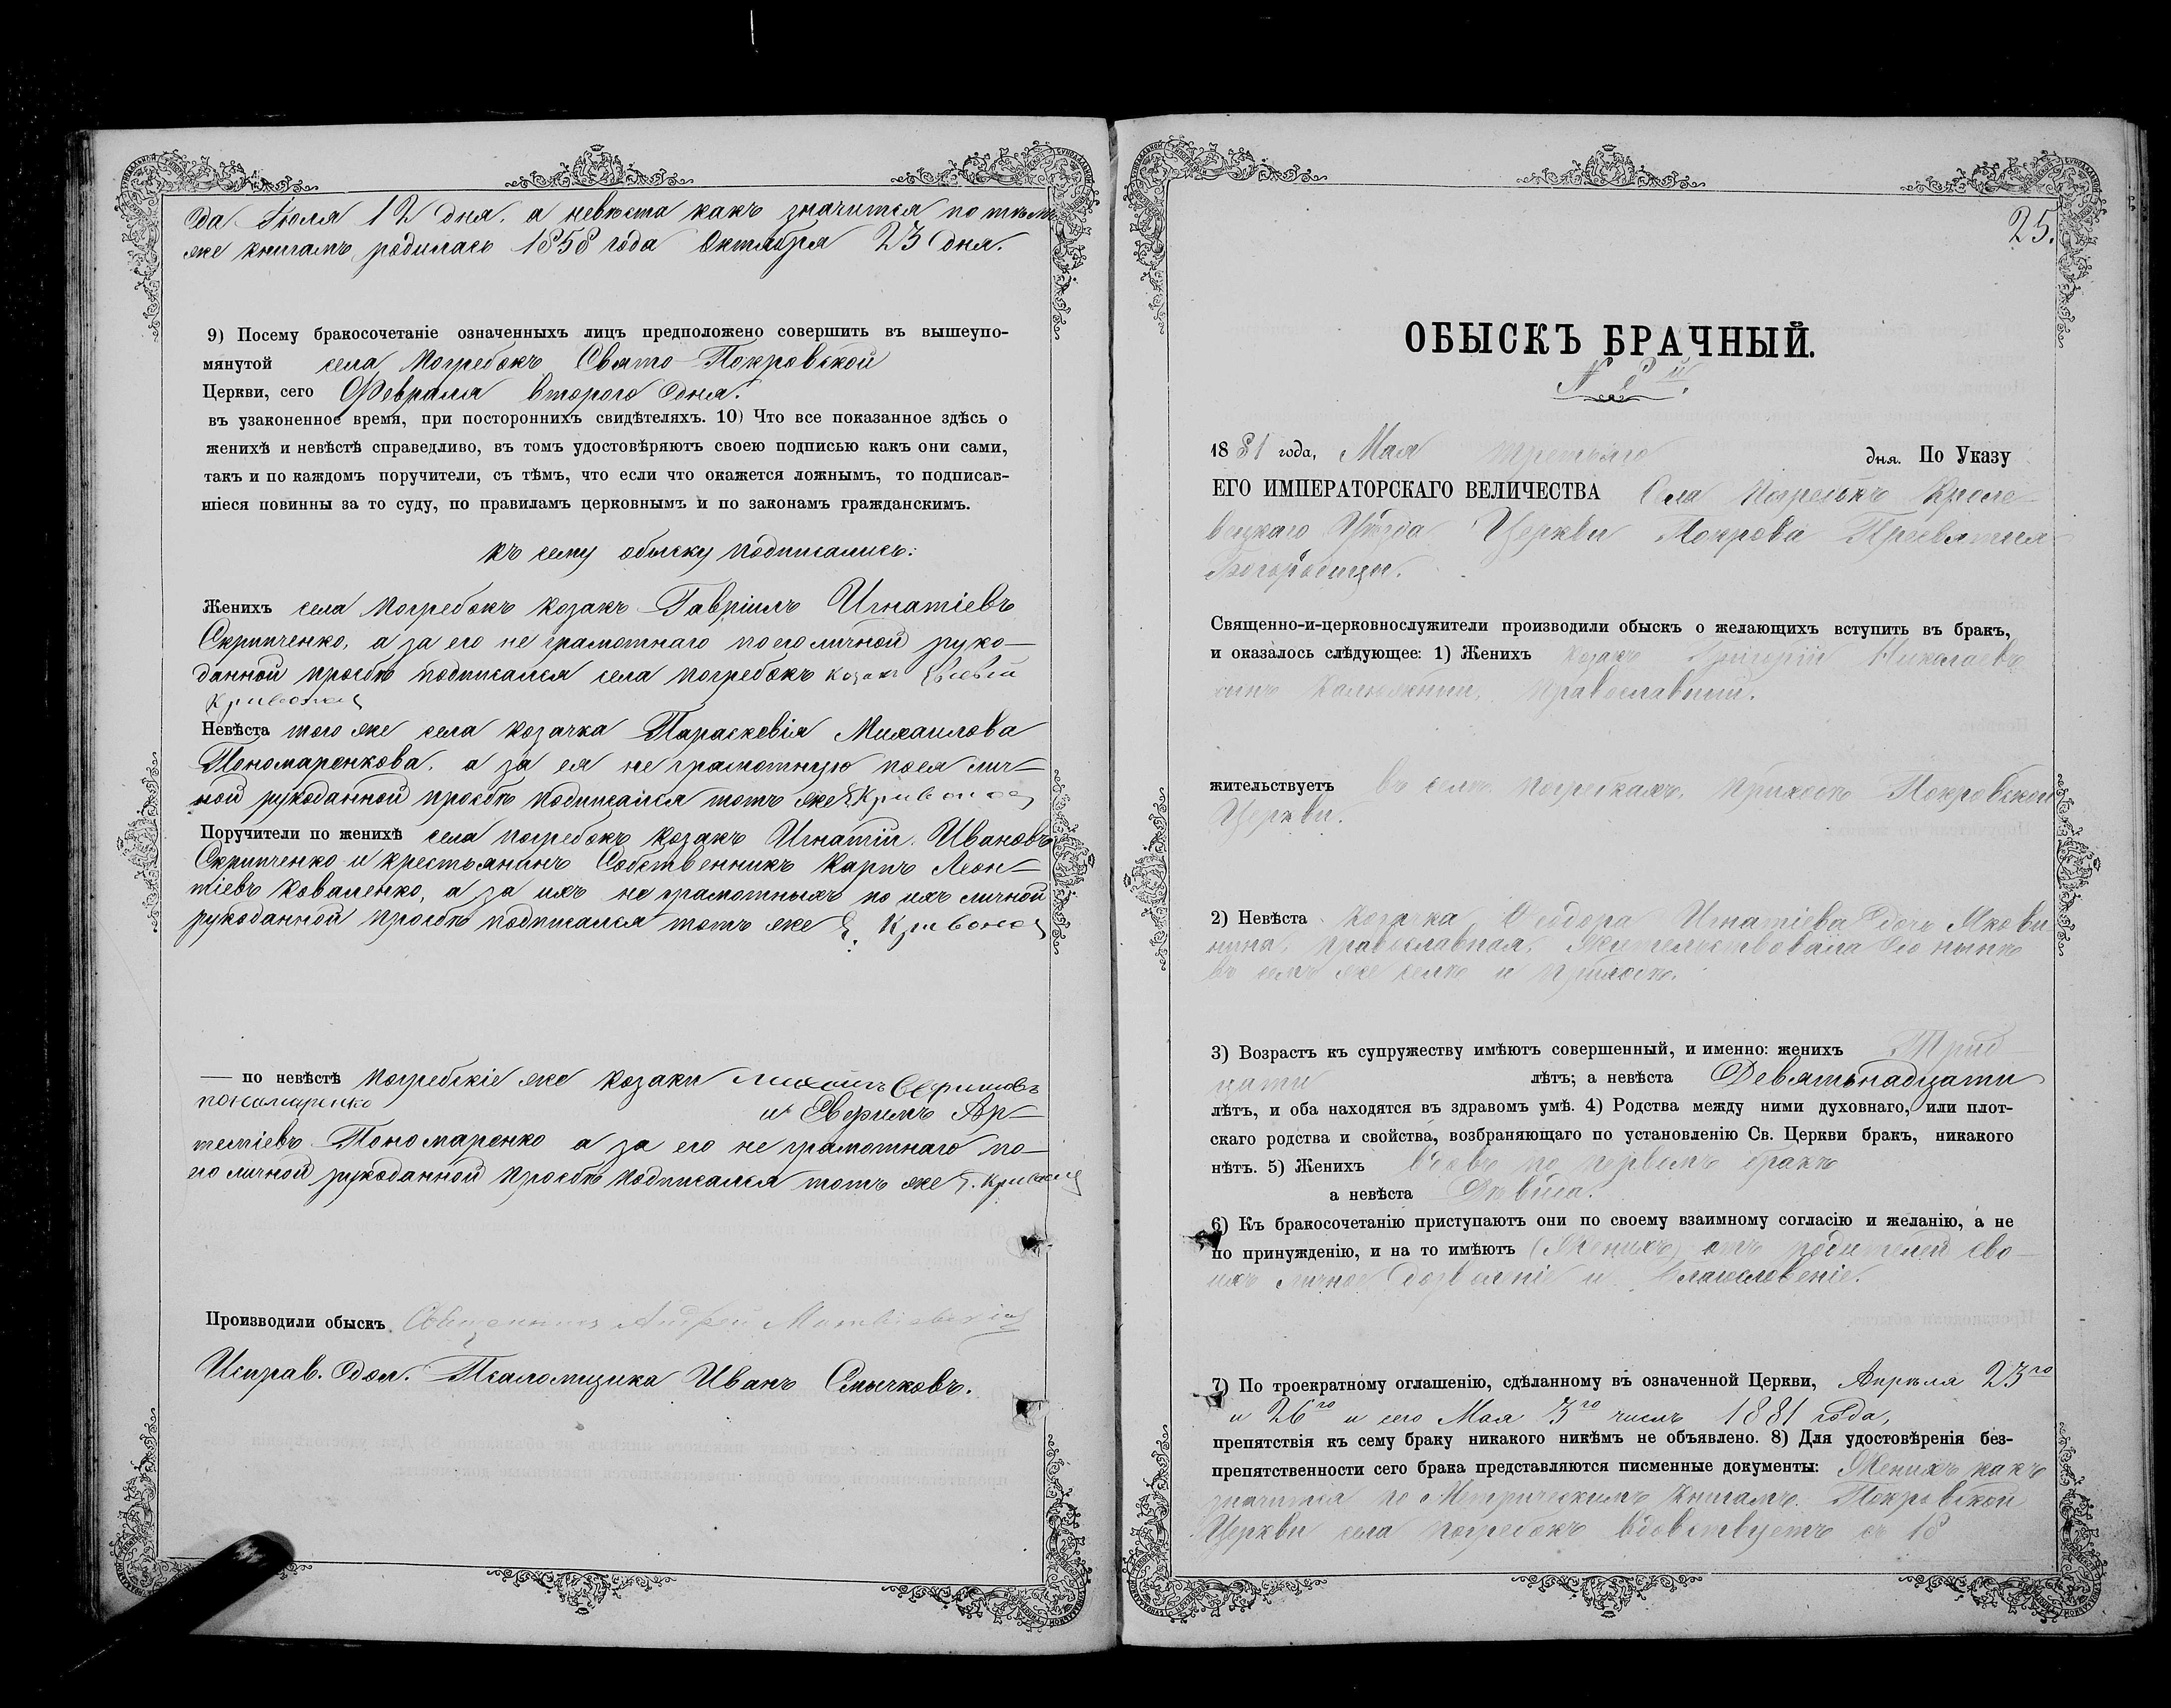 да Іюля 12 дня. а невѣста какъ значится по тѣмъ
же книгамъ родилась 1858 года Октября 23 дня.
9) Посему бракосочетаніе означенныхъ лицъ предположено совершить въ вышеупо-
мянутой села Погребокъ Свято-Покровской
Церкви, сего Февраля второго дня.
въ узаконенное время, при постороннихъ свидѣтеляхъ. 10) Что все показанное здѣсь о
женихѣ и невѣстѣ справедливо, въ томъ удостовѣряютъ своею подписью какъ они сами,
такъ и по каждомъ поручители, съ тѣмъ, что если что окажется ложнымъ, то подписав-
шіеся повинны за то суду, по правиламъ церковнымъ и по законамъ гражданскимъ.
къ сему обыску подписались:
Женихъ села Погребокъ козакъ Гавріилъ Игнатіевъ
Скрипченко, а за его не грамотнаго по его личной руко-
данной прозбѣ подписался села погребокъ козакъ Евсевій
Кривонос
Невѣста того же села козачка Параскевія Михаилова
Пономаренкова, а за ея не грамотную по ея лич-
ной рукоданной прозбѣ подписался тотъ же Е Кривонос
Поручители по женихѣ села погребокъ козакъ Игнатій Ивановъ
Скрипченко и крестьянинъ Собственникъ Карпъ Леон-
тіевъ Коваленко, а за ихъ не грамотныхъ по ихъ личной
рукоданной прозбѣ подписался тотъ же Е. Кривонос
— по невѣстѣ Погребскіе же козаки Михаилъ Ефимовъ
пономаренко
и Евфимъ Ар-
темпіевъ Пономаренко а за его не грамотнаго по-
его личной рукоданной прозбѣ подписался тотъ же Е. Кривонос
Производили обыскъ Священникъ Андрей
Исправ. дол. Псаломщика Иванъ Смычковъ.
25.
ОБЫСКЪ БРАЧНЫЙ.
1881 года, Мая третьяго дня. По Указу
ЕГО ИМПЕРАТОРСКАГО ВЕЛИЧЕСТВА Села Погребокъ Кроле-
вецкаго Уѣзда Церкви Покрова Пресвятыя
Богородицы.
Священно-и-церковнослужители производили обыскъ о желающихъ вступить въ бракъ,
и оказалось слѣдующее: 1) Женихъ козакъ Григорій Николаевъ
сынъ православный.
жительствуетъ въ селѣ погребкахъ, приходѣ Покровской
Церкви.
2) Невѣста козачка Ѳеодора Игнатіева дочь Якови-
нина, православная, жительствовала до нынѣ
въ семъ же селѣ и приходѣ.
3) Возрастъ къ супружеству имѣютъ совершенный, и именно: женихъ Трид
цати лѣтъ; а невѣста Девятьнадцати
лѣтъ, и оба находятся въ здравомъ умѣ. 4) Родства между ними духовнаго, или плот-
скаго родства и свойства, возбраняющаго по установленію Св. Церкви бракъ, никакого
нѣтъ. 5) Женихъ вдовъ по первомъ бракѣ
а невѣста дѣвица.
6) Къ бракосочетанію приступаютъ они по своему взаимному согласію и желанію, а не
по принужденію, и на то имѣютъ (Женихъ) отъ родителей сво-
ихъ личное дозволеніе и благословеніе.
7) По троекратному оглашенію, сдѣланному въ означенной Церкви, Апрѣля 23го
и 26го и сего Мая 3го числъ 1881 года,
препятствія къ сему браку никакого никѣмъ не объявлено. 8) Для удостовѣренія без-
препятственности сего брака представляются писменные документы: Женихъ какъ
значится по Метрическимъ книгамъ Покровской
Церкви села погребокъ вдовствуетъ съ 18